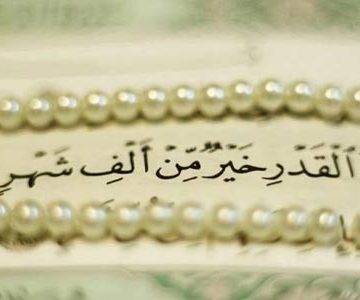 ٱلۡقَدۡرِ خَيۡرٞ مِّنۡ أَلۡفِ شَهۡرٖ